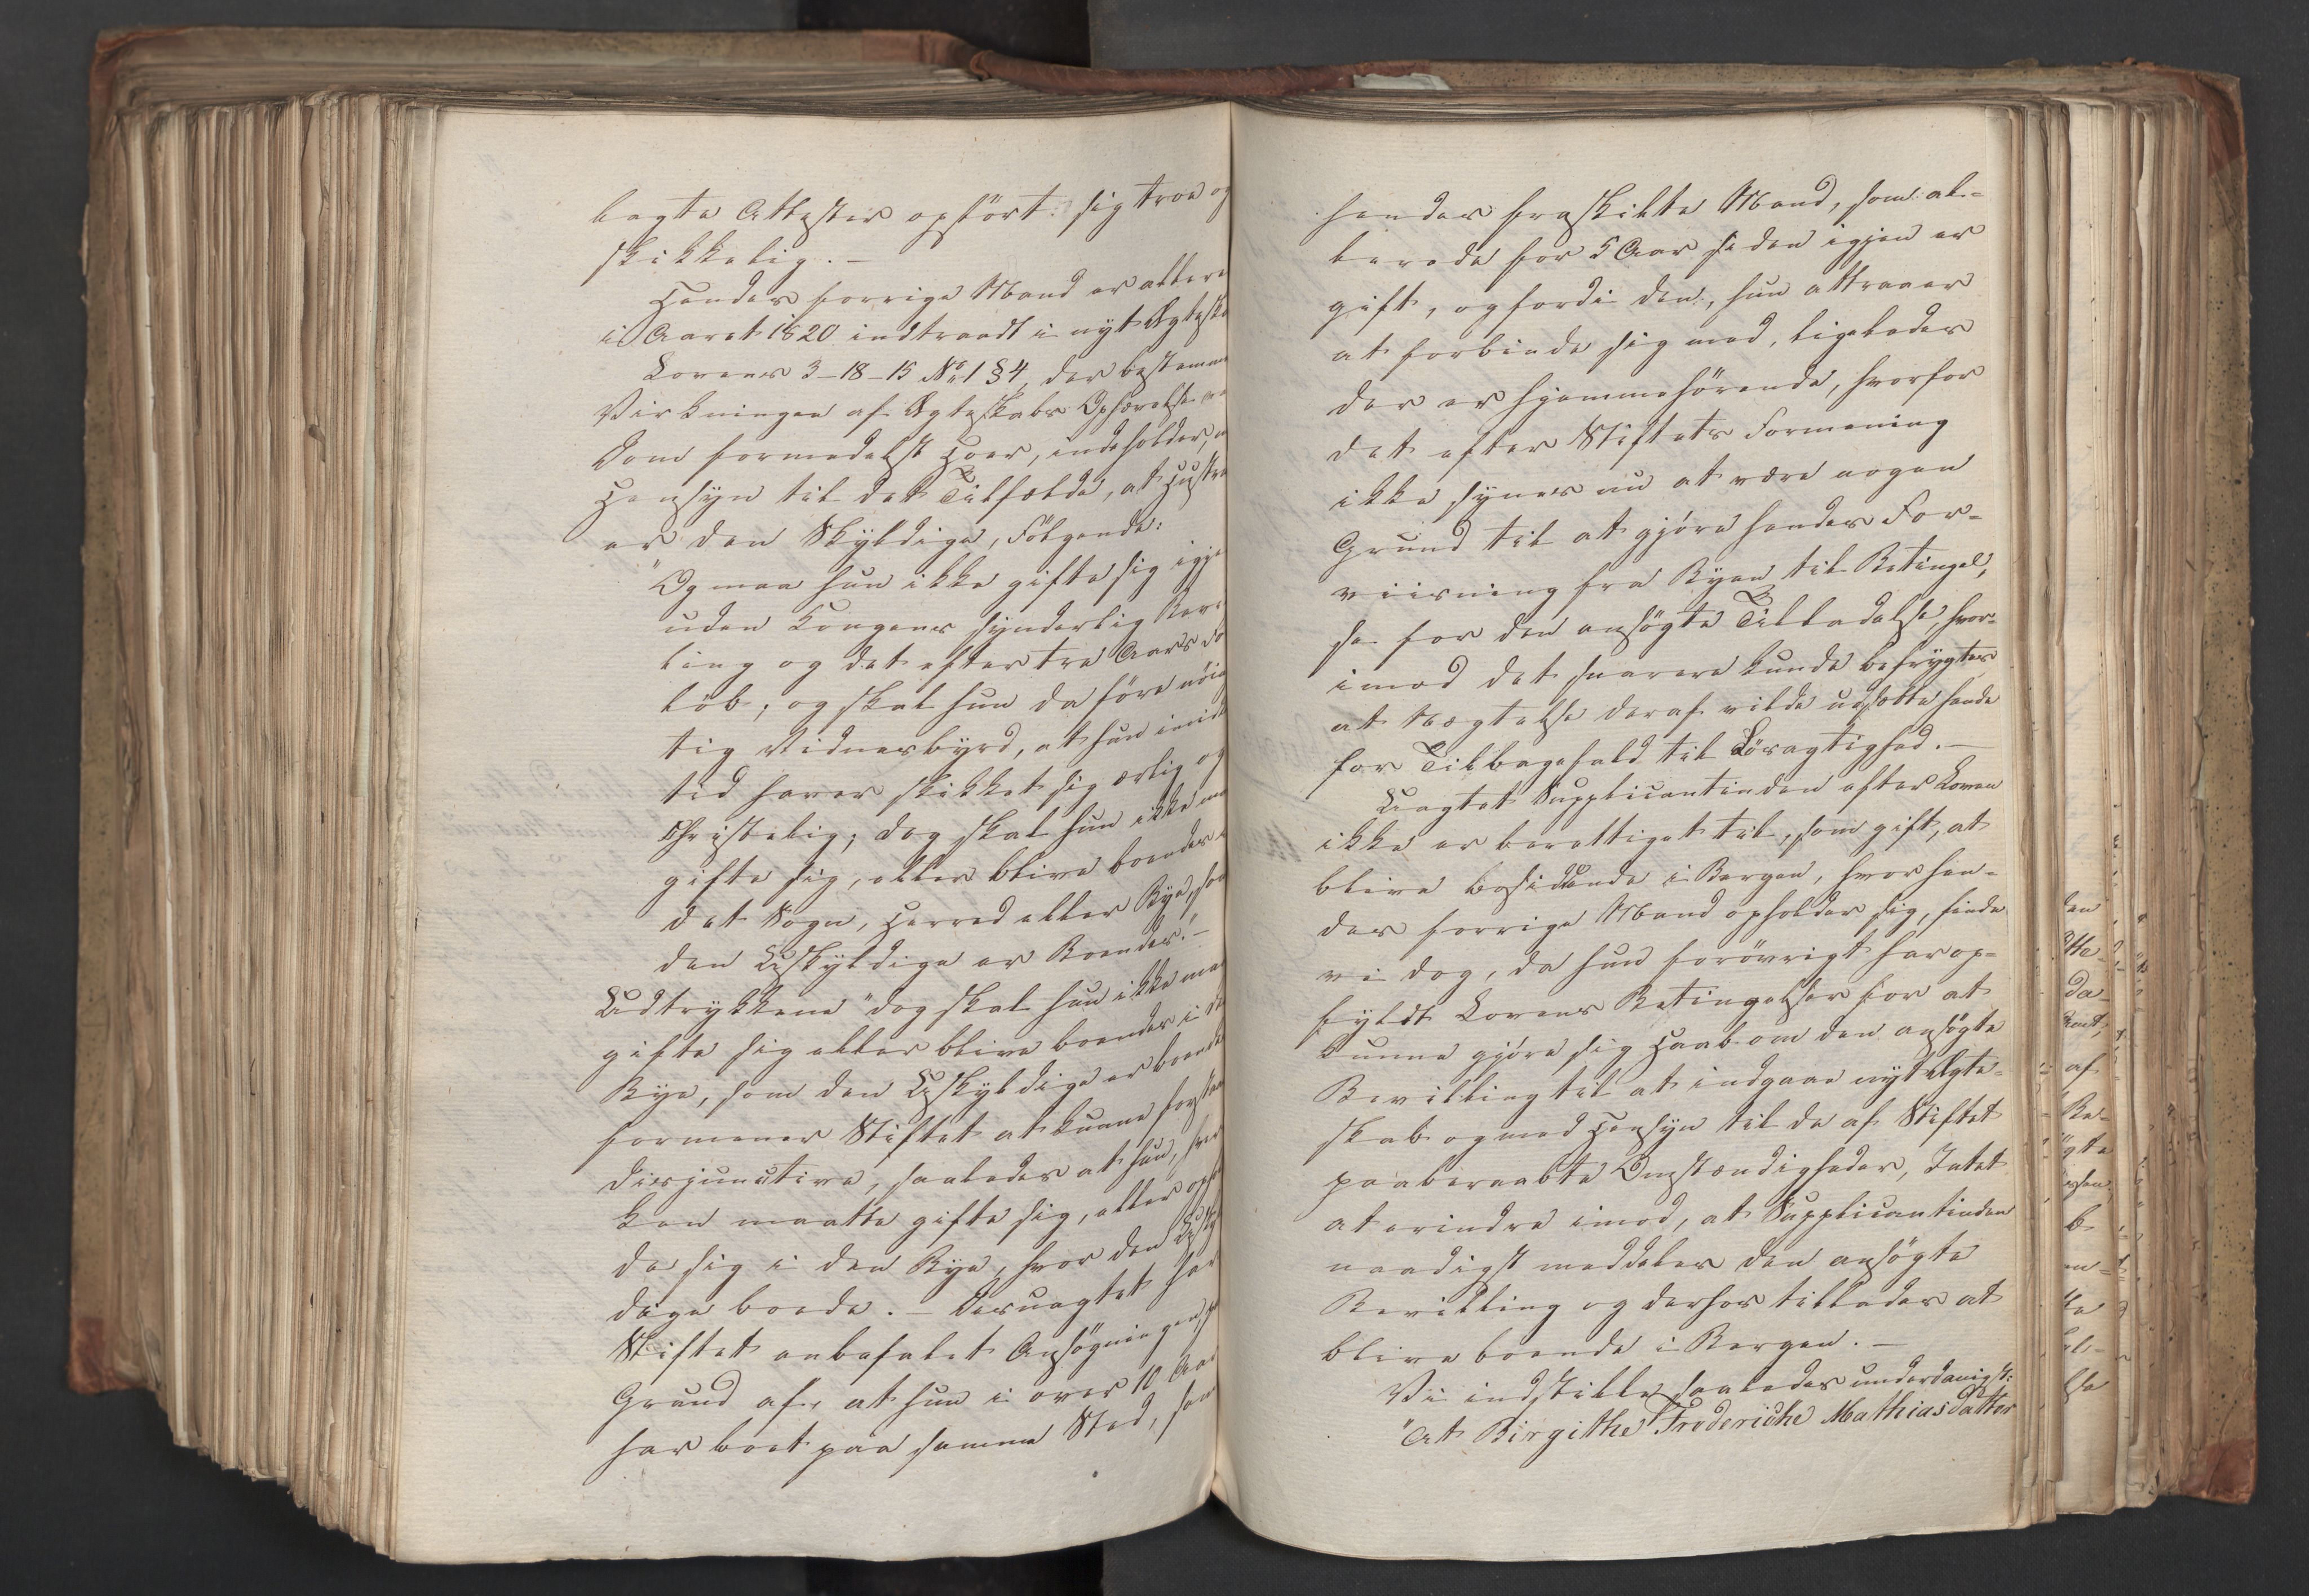 lagte Attester opført sig troe og
skikkelig. –
Hendes forrige Mand er allere
i Aaret 1820 indtraadt i nyt Ægteska
Lovens 3–18–15 No 1 § 4, der bestemme
Virkningen af Ægteskabs Ophævelse ve
Dom formedelst Hoer, indeholder, m
Hensyn til det Tilfælde, at Hustru
er den Skyldige, Følgende:
"Og maa hun ikke gifte sig igje
uden Kongens synderlig Bevi
ling og det efter tre Aars For
løb, og skal hun da føre nöiag
tig Vidnesbyrd, at hun imid
tid haver skikket sig ærlig og
Christelig; dog skal hun ikke maa
gifte sig, eller blive boendes i
det Sogn, Herred eller Bye, som
den Uskyldige er Boendes." –
Udtrykkene "dog skal hun ikke maa
gifte sig eller blive boendes i de
Bye, som den Uskyldige er boende
formener Stiftet at kunne forstaa
disjunctive, saaledes at hun, hver
ken maatte gifte sig, eller ophol
de sig i den Bye, hvor den Uskyl
dige boede. – Desuagtet har
Stiftet anbefalet Ansøgningen, p
Grund af, at hun i over 10 Aar
har boet paa samme Sted, som
hendes fraskilte Mand, som al-
lerede for 5 Aar siden igjen er
gift, og fordi den, hun attraaer
at forbinde sig med, ligeledes
der er hjemmehørende, hvorfor
det efter Stiftets Formening
ikke synes nu at være nogen
Grund til at gjøre hendes For-
viisning fra Byen til Betingel,
se for den ansøgte Tilladelse, hvor-
imod det snarere kunde befrygtes
at Nægtelse deraf vilde udsætte hende
for Tilbagefald til Løsagtighed. –
Uagtet Supplicantinden efter Loven
ikke er berettiget til, som gift, at
blive besiddende i Bergen, hvor hen-
des forrige Mand opholder sig, finde
vi dog, da hun forøvrigt har op-
fyldt Lovens Betingelser for at
kunne gjøre sig Haab om den ansøgte
Bevilling til at indgaae nyt Ægte-
skab og med Hensyn til de af Stiftet
paaberaabte Omstændigheder, Intet
at erindre imod, at Supplicantinden
naadigst meddeles den ansøgte
Bevilling og derhos tillades at
blive boende i Bergen. –
Vi indstille saaledes underdanigst:
"At Birgithe Frederiche Mathiasdatter